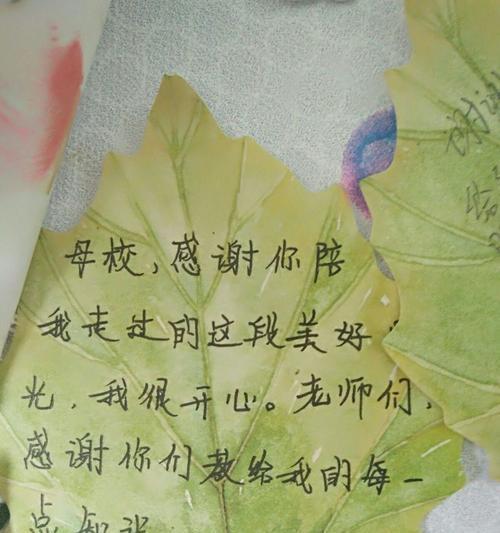 母校，感谢你陪
我走过的这段美好
光，我很开心。老师们，
感谢你们教给我的每一
点知识
谢谢